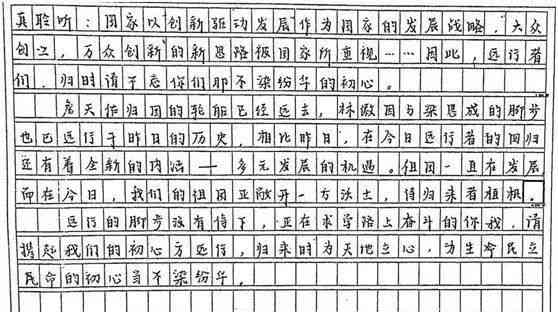 真聆听：国家以创新驱动发展作为国家的发展战略，大众
创立，万众创新的新思路被国家所重视……因此，远行着
们，归时请不忘你们那不染纷华的初心。
詹天佑归国的轮船已经远去，林徽因与梁思成的脚步
也已远行于昨日的历史，相比昨日，在今日远行者的回归
还有着全新的内涵——多元发展的机遇。祖国一直在发展
而在今日，我们的祖国正敞开一方沃土，待归来者植根。
远行的脚步没有停下，正在求学路上奋斗的你我，请
携起我们的初心方远行，归来时为天地立心，为生命民立
民命的初心当不染纷华。